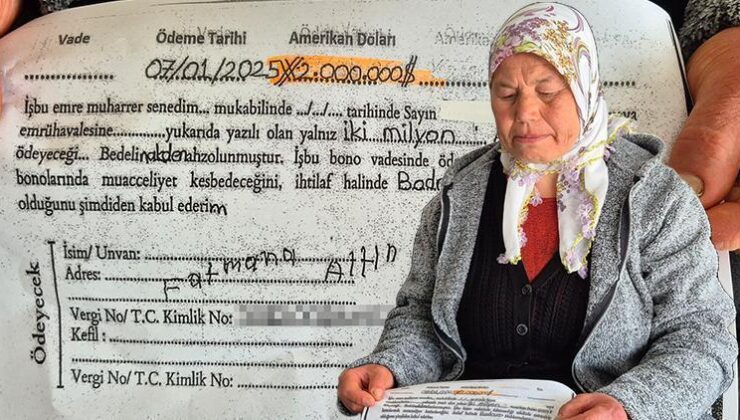 Vade Ödeme Tarihi Amerikan Doları Amerika
07/01/2025 X2.000.000$
İşbu emre muharrer senedim... mukabilinde ../../.... tarihinde Sayın
emrühavalesine..............yukarıda yazılı olan yalnız iki milyon
ödeyeceğ... Bedeli nakden ahzolunmuştur. İşbu bono vadesinde öd
bonolarında muacceliyet kesbedeceğini, ihtilaf halinde Bod
olduğunu şimdiden kabul ederim
Ödeyecek
İsim/ Unvan:
Fatmana Altın
Adres:
Vergi No/ T.C. Kimlik No:
Kefil:
Vergi No/ T.C. Kimlik No: